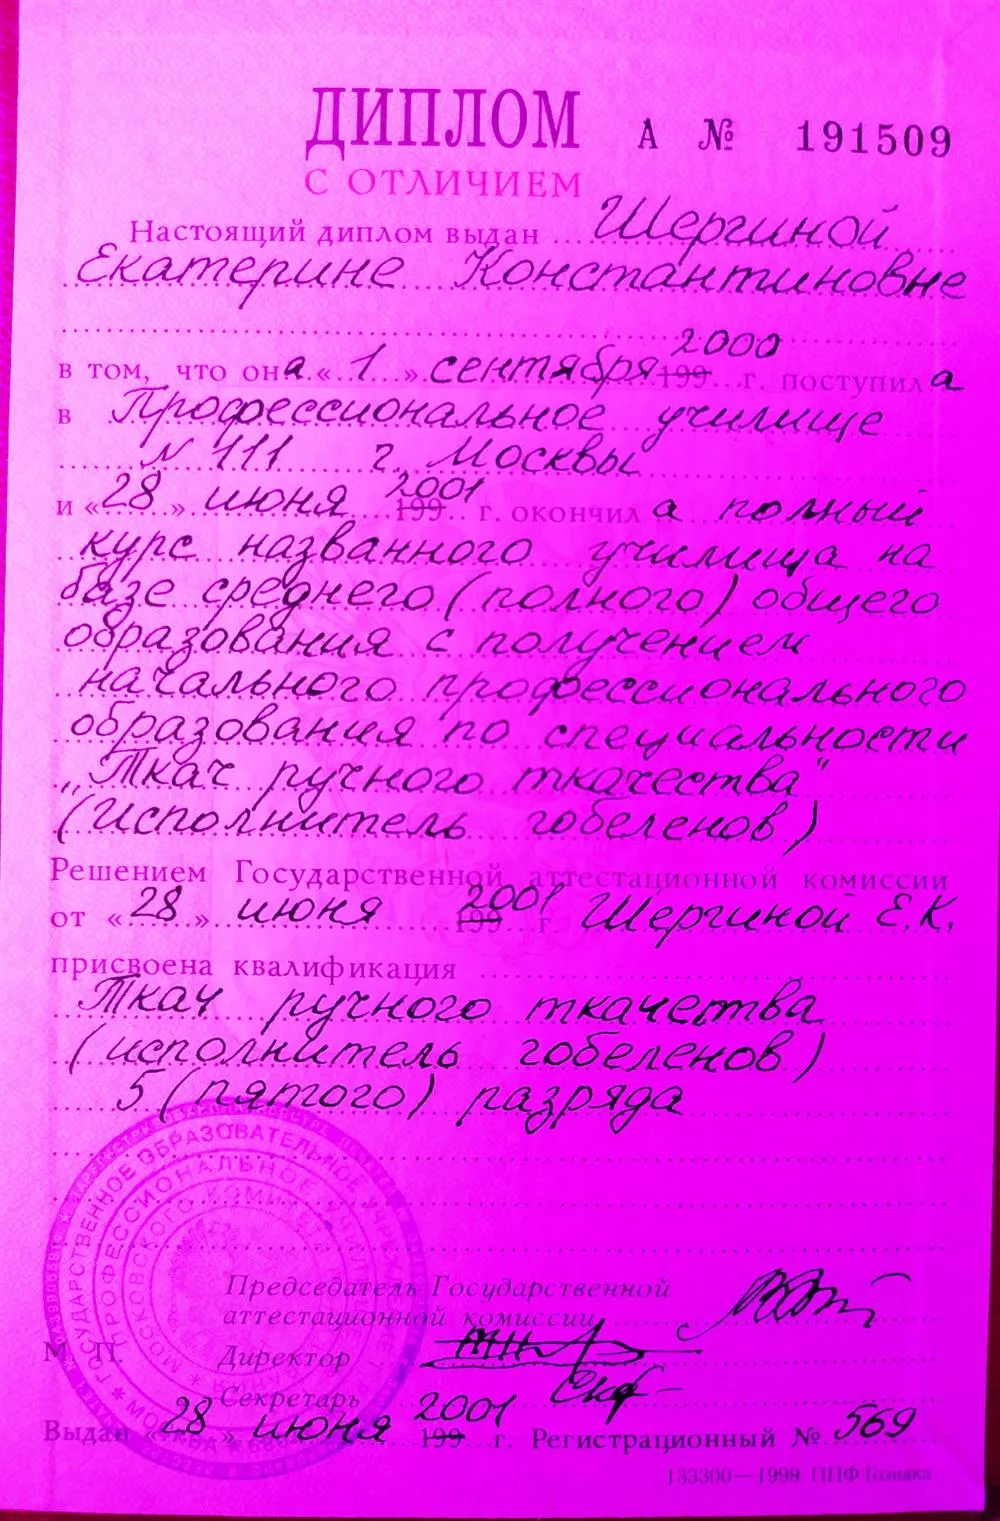 ДИПЛОМ А № 191509
С ОТЛИЧИЕМ
Настоящий диплом выдан Шергиной
Екатерине Константиновне
в том, что она «1» сентября 199 2000 г. поступила
в Профессиональное училище
N 111 г. Москвы
и «28» июня 199 2001 г. окончила полный
курс названного училища на
базе среднего (полного) общего
образования с получением
начального профессионального
образования по специальности
„Ткач ручного ткачества"
(исполнитель гобеленов)
Решением Государственной аттестационной комиссии
от «28» июня 199 2001 г. Шергиной Е.К.
присвоена квалификация
Ткач ручного ткачества
(исполнитель гобеленов)
5 (пятого) разряда
ГОСУДАРСТВЕННОЕ ОБРАЗОВАТЕЛЬНОЕ
ПРОФЕССИОНАЛЬНОЕ
МОСКОВСКОГО КОМИТЕТА
Председатель Государственной
аттестационной комиссии
М. П. Директор
Секретарь
Выдан «28» июня 199 2001 г. Регистрационный № 569
133300—1999 ППФ